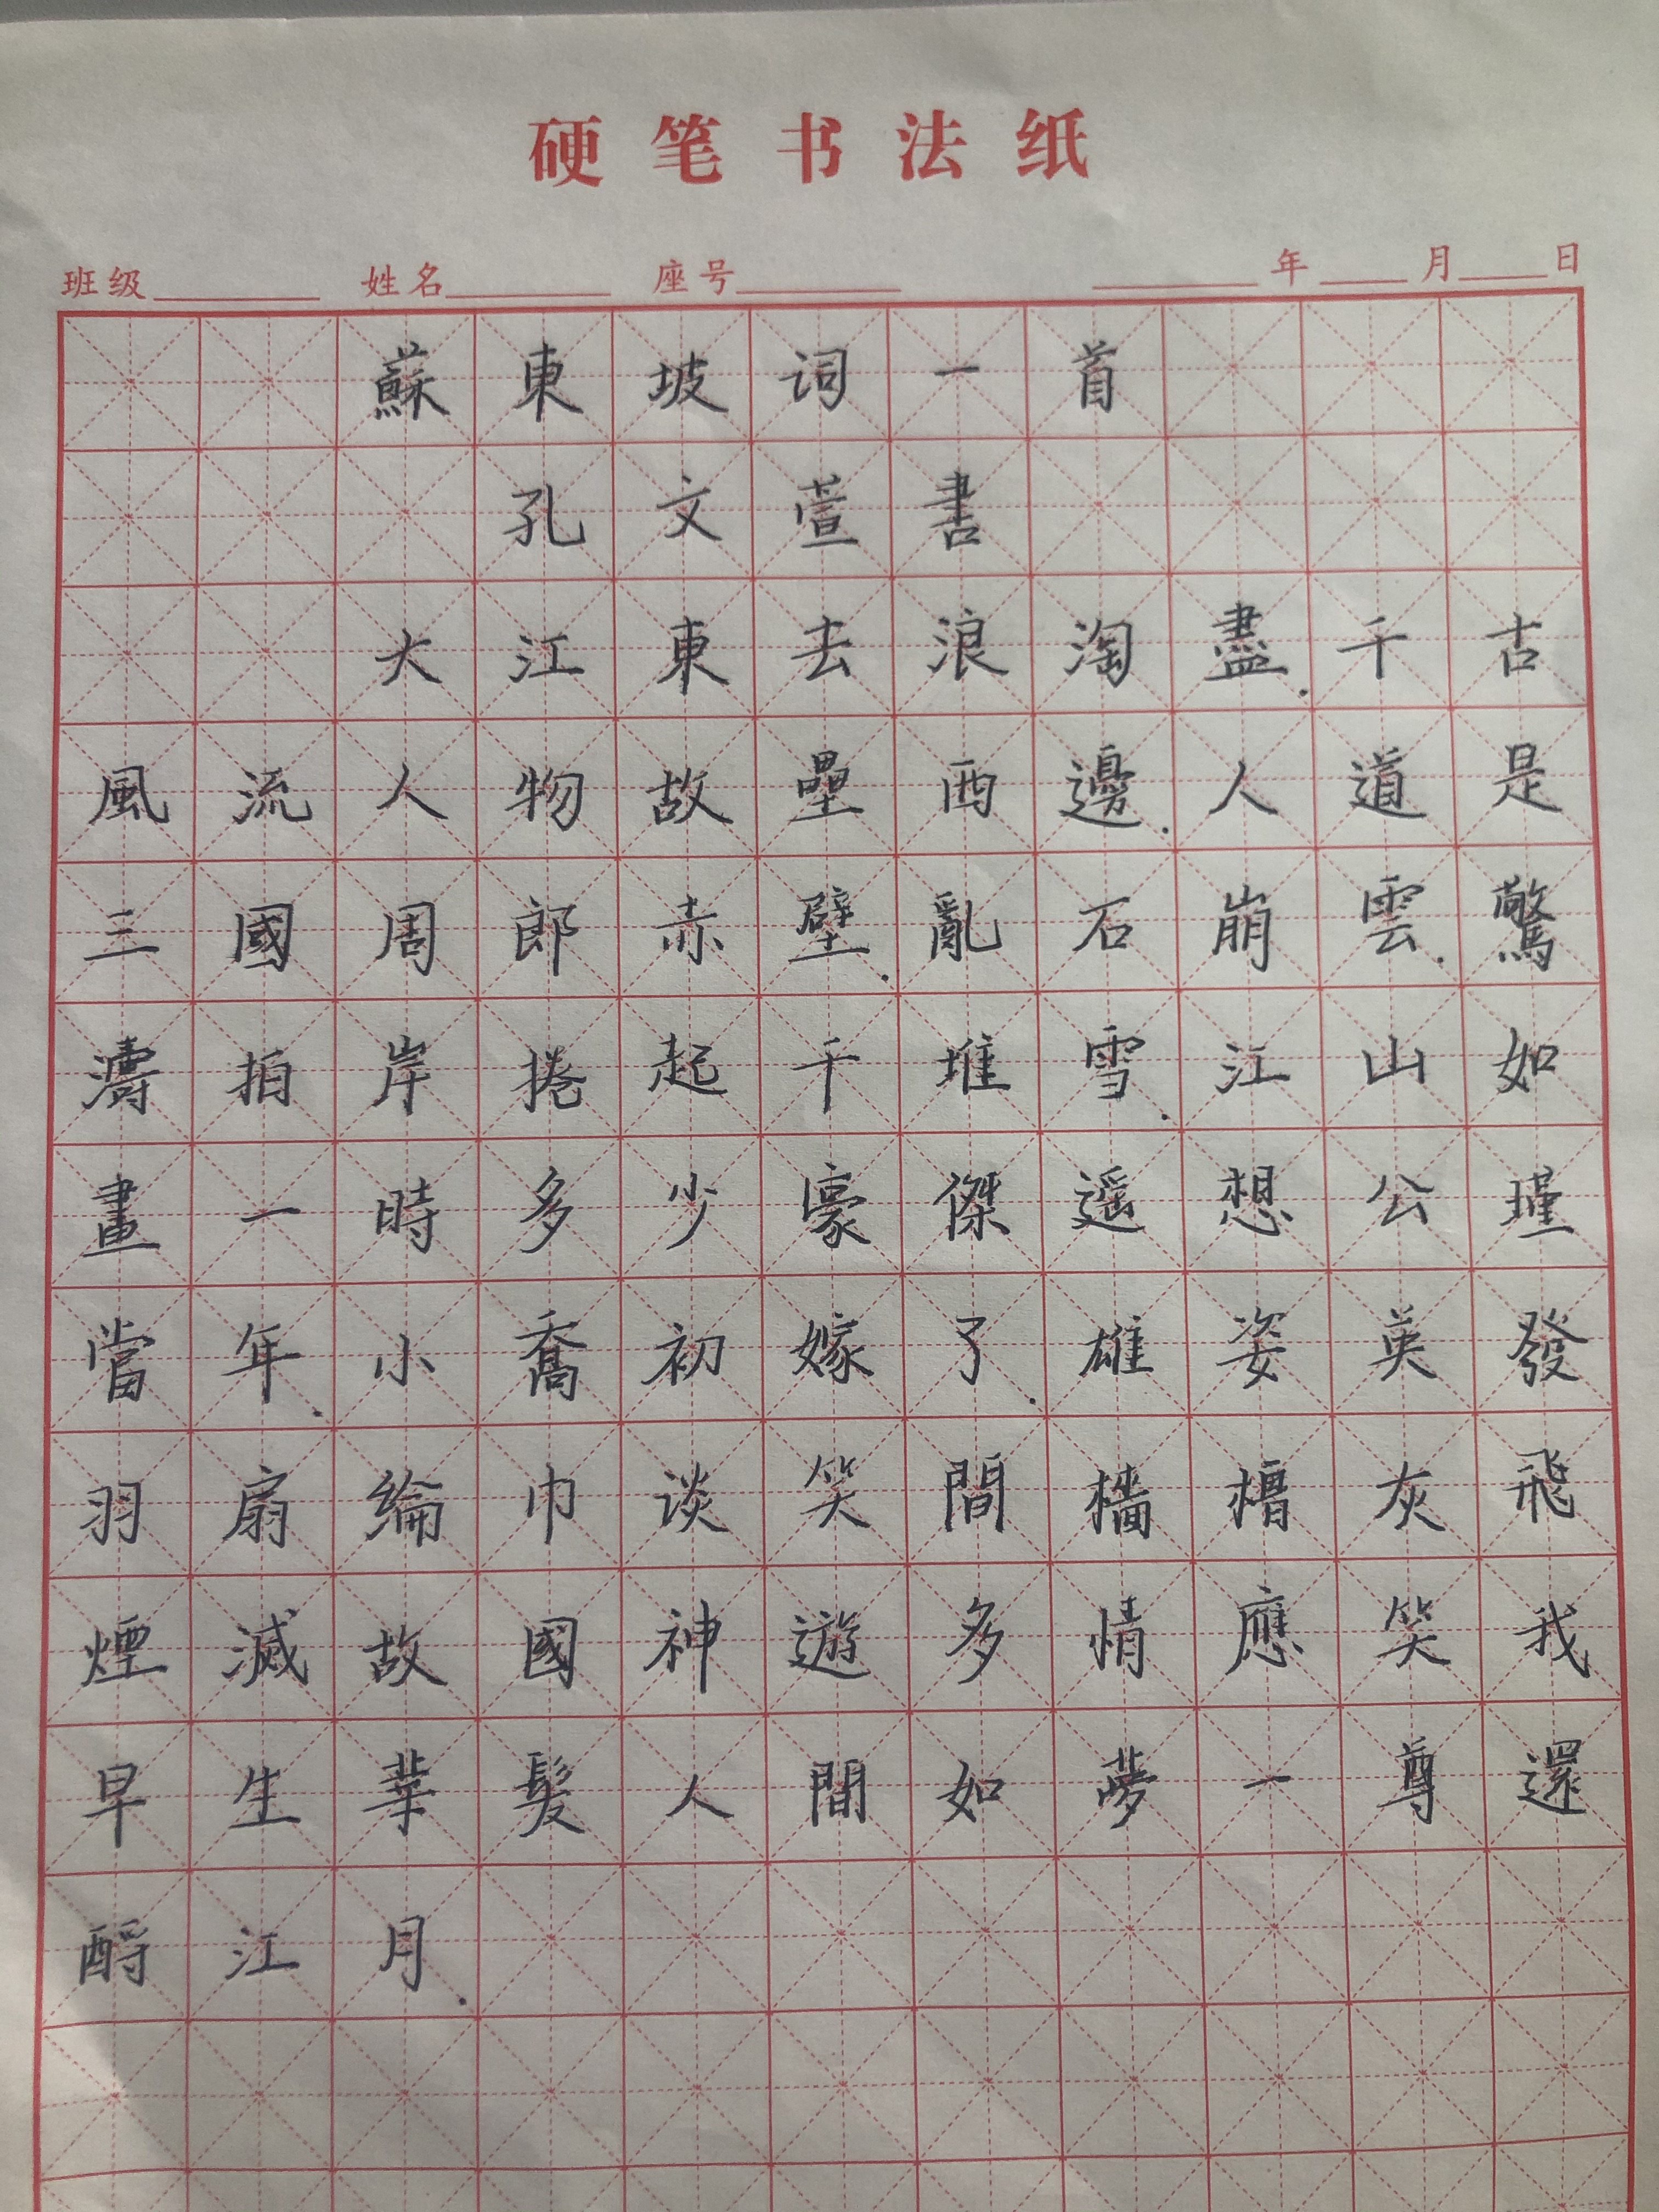 硬笔书法纸
班级 姓名 座号 年 月 日
蘇東坡词一首
孔文萱書
大江東去浪淘盡.千古
風流人物故壘西邊.人道是
三國周郎赤壁.亂石崩雲.驚
濤拍岸捲起千堆雪.江山如
畫一時多少豪傑遥想公瑾
當年.小喬初嫁了.雄姿英發
羽扇綸巾谈笑間檣櫓灰飛
煙滅故國神遊多情應笑我
早生華髮人間如夢一尊還
酹江月.